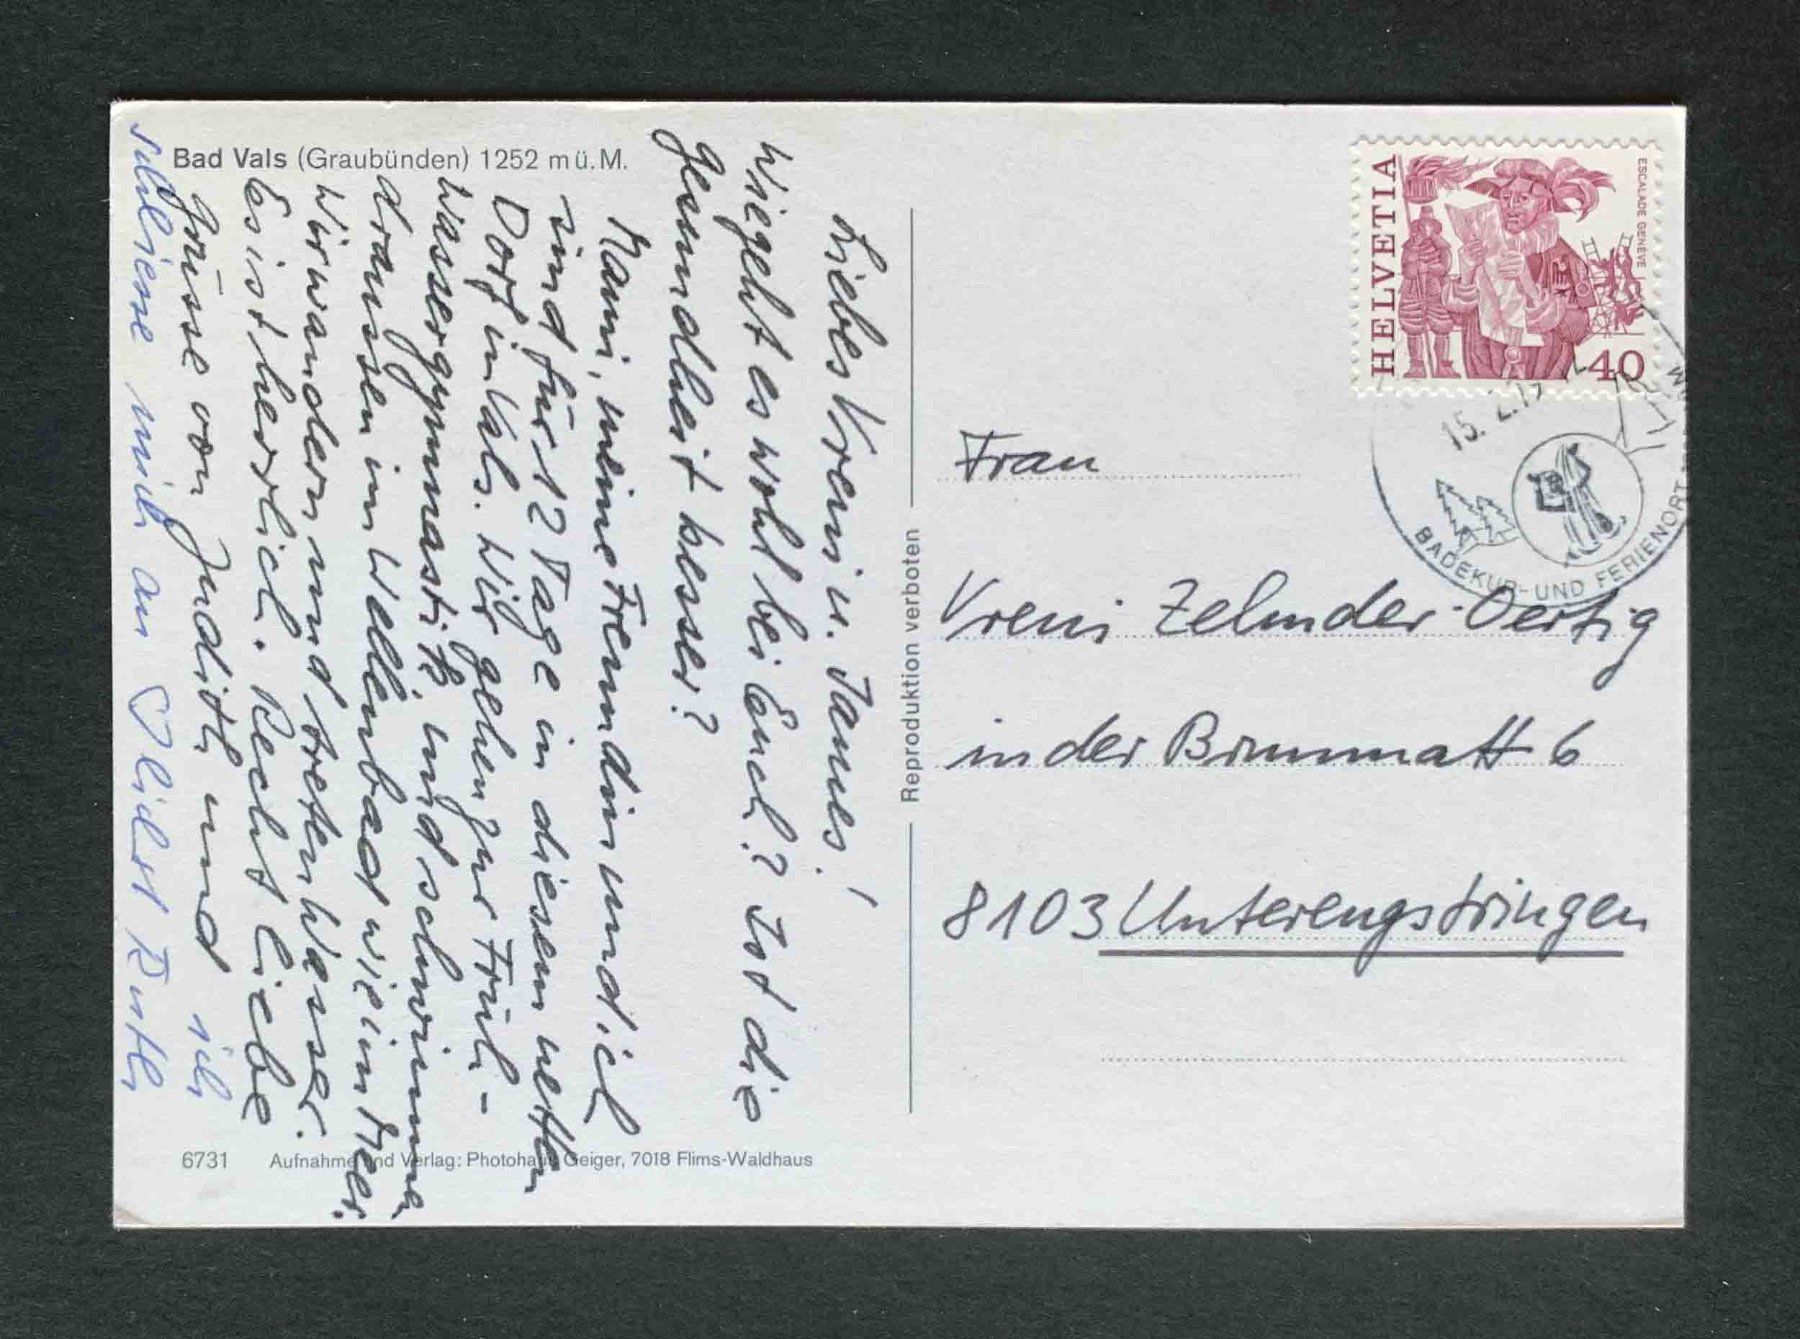 Bad Vals (Graubünden) 1252 m ü. M.
Liebes Vreni u. James!
Wie geht es wohl bei Euch? Ist die
Gesundheit besser?
Mami, meine Freundin und ich
sind für 12 Tage in diesem netten
Dorf in Vals. Wir gehen zur Früh-
Wassergymnastik und schwimmen
draussen im Wellenbad wie im Meer.
Wir wandern und treten Wasser.
Es ist herrlich. Recht liebe
Grüsse von Judith und ich
schliesse mich an ♡lichst Ruth
6731 Aufnahme und Verlag: Photohaus Geiger, 7018 Flims-Waldhaus
Reproduktion verboten
HELVETIA
ESCALADE GENÈVE
40
15. 2.
BADEKUR- UND FERIENORT
Frau
Vreni Zehnder-Oertig
in der Brunnmatt 6
8103 Unterengstringen